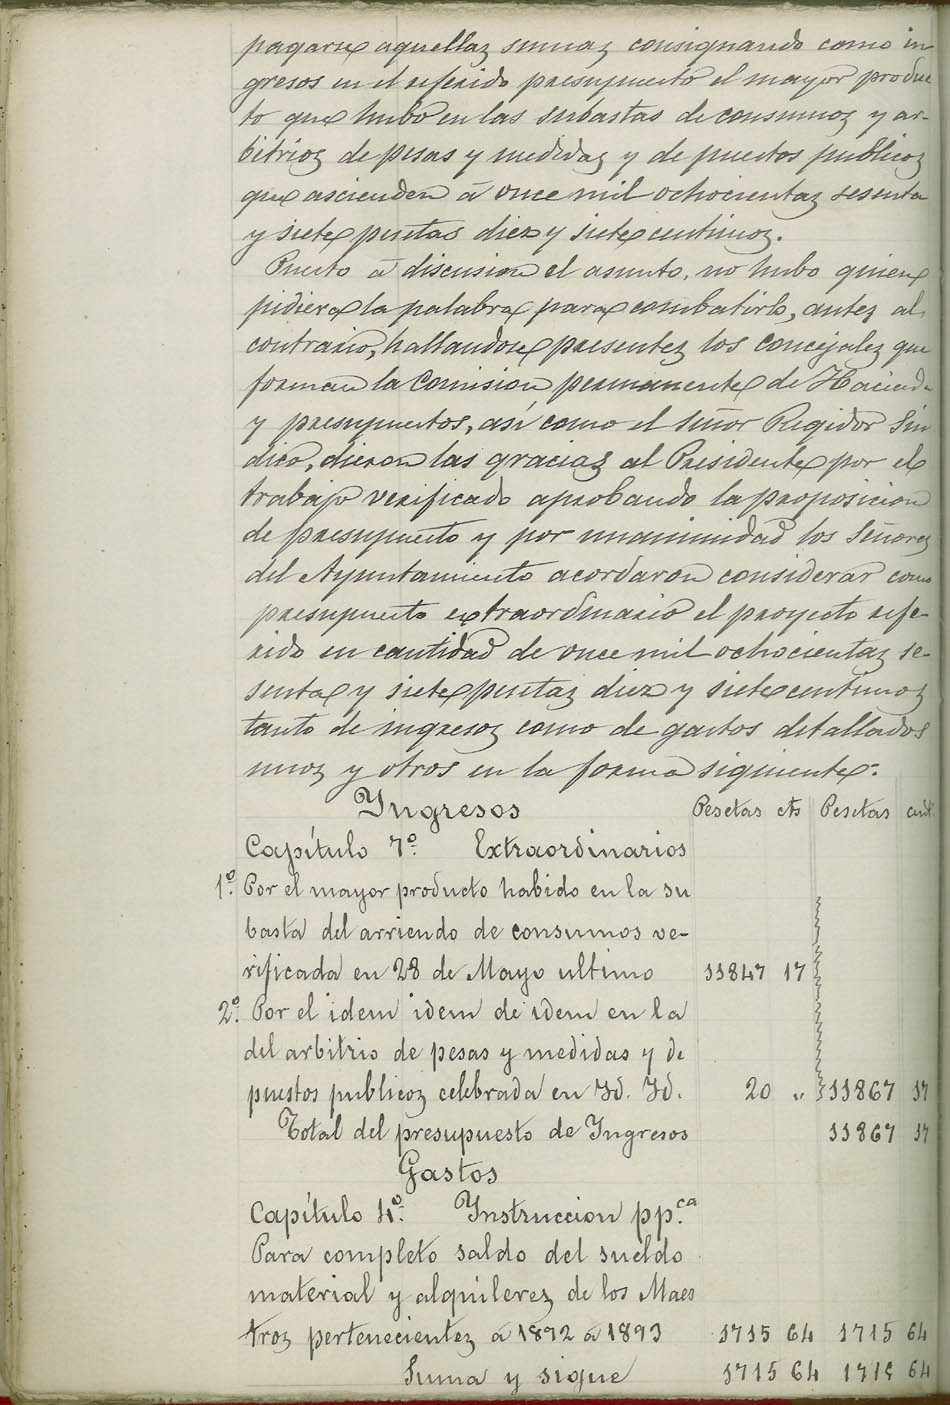 pagarse aquellas sumas consignando como in
gresos en el referido presupuesto el mayor produc
to que hubo en las subastas de consumos y ar-
bitrios de pesas y medidas y de puestos publicos
que ascienden á once mil ochocientas sesenta
y siete pesetas diez y siete centimos.
Puesto á discusion el asunto, no hubo quien
pidiera la palabra para combatirlo, antes al
contrario, hallandose presentes los Concejales que
forman la Comision permanente de Hacienda
y presupuestos, así como el Señor Regidor Sin
dico, dieron las gracias al Presidente por el
trabajo verificado aprobando la proposicion
de presupuesto y por unanimidad los Señores
del Ayuntamiento acordaron considerar como
presupuesto extraordinario el proyecto refe-
rido en cantidad de once mil ochocientas se-
senta y siete pesetas diez y siete centimos
tanto de ingresos como de gastos detallados
unos y otros en la forma siguiente:
Ingresos Pesetas cts Pesetas cent.
Capítulo 7º. Extraordinarios
1º. Por el mayor producto habido en la su
basta del arriendo de consumos ve-
rificada en 28 de Mayo ultimo 11847 17
2º. Por el idem idem de idem en la
del arbitrio de pesas y medidas y de
puestos publicos celebrada en Id. Id. 20 " 11867 17
Total del presupuesto de Ingresos 11867 17
Gastos
Capítulo 4º. Instruccion pp.ca
Para completo saldo del sueldo
material y alquileres de los Maes
tros pertenecientes á 1892 á 1893 1715 64 1715 64
Suma y sigue 1715 64 1715 64